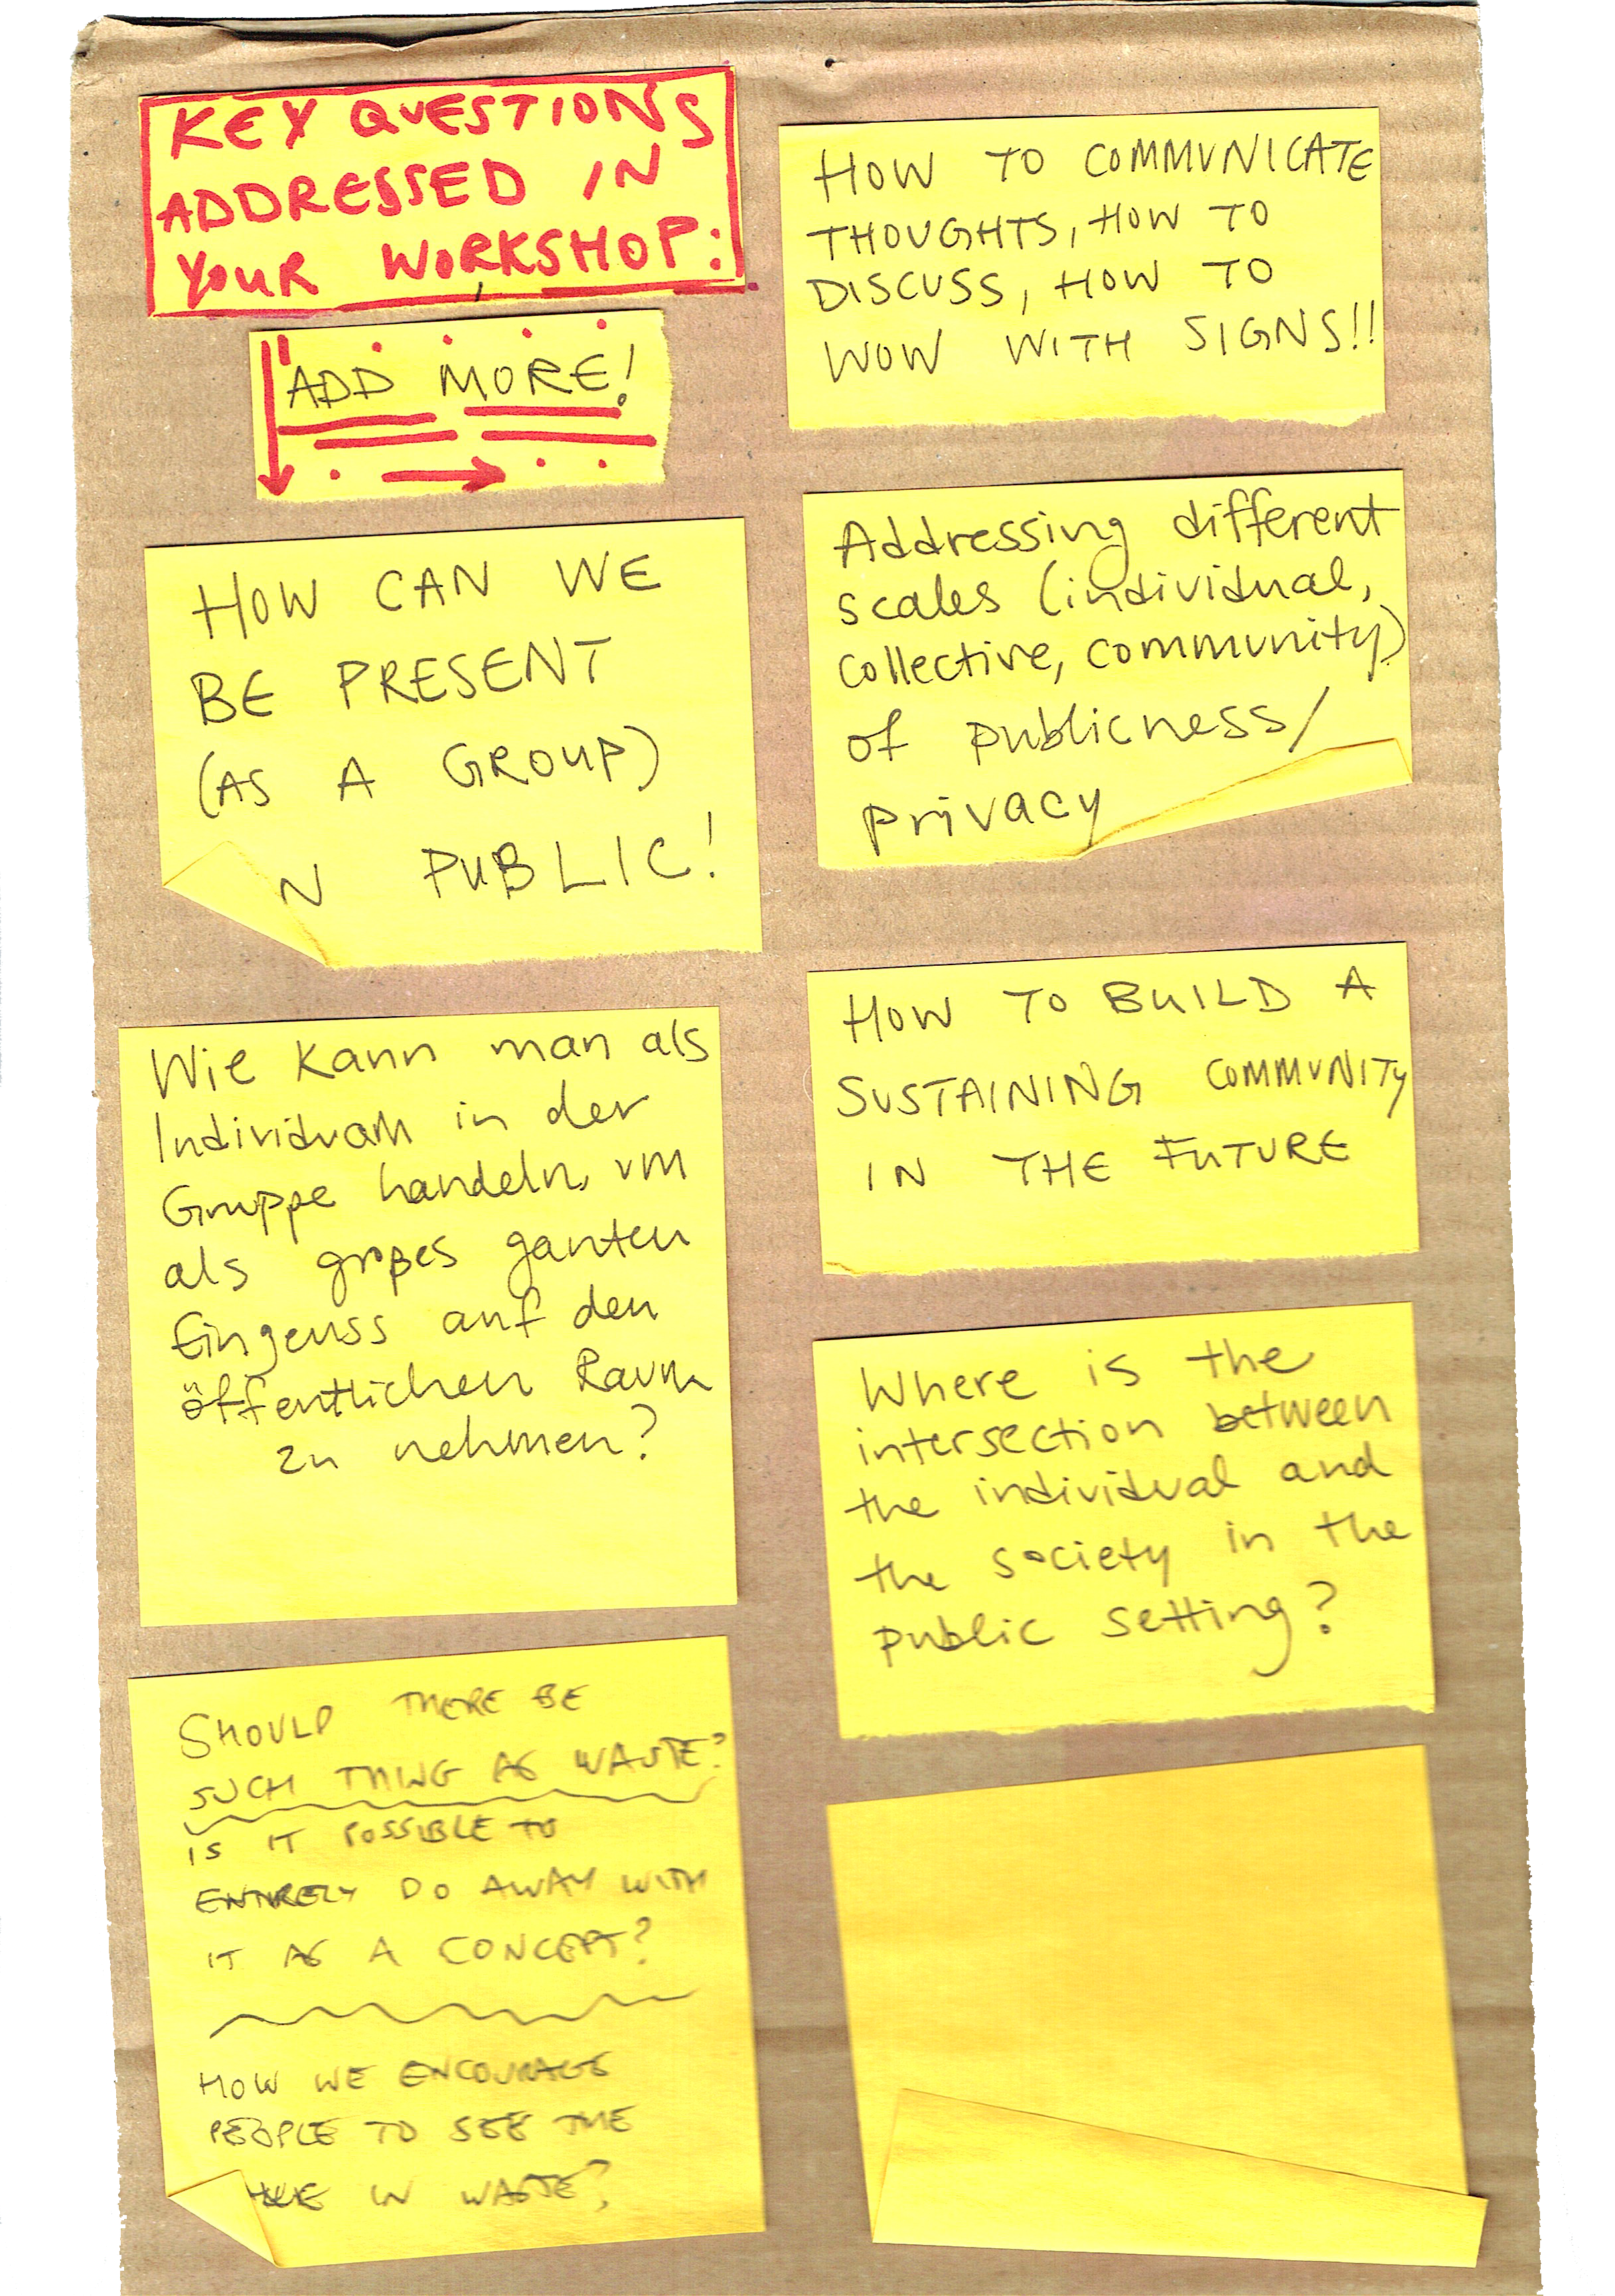 KEY QUESTIONS
ADDRESSED IN
YOUR WORKSHOP:
ADD MORE!
HOW CAN WE
BE PRESENT
(AS A GROUP)
N PUBLIC!
Wie kann man als
Individuum in der
Gruppe handeln, um
als großes ganzen
Einfluss auf den
öffentlichen Raum
zu nehmen?
SHOULD THERE BE
SUCH THING AS WASTE?
IS IT POSSIBLE TO
ENTIRELY DO AWAY WITH
IT AS A CONCEPT?
HOW WE ENCOURAGE
PEOPLE TO SEE THE
IN WASTE?
HOW TO COMMUNICATE
THOUGHTS, HOW TO
DISCUSS, HOW TO
WOW WITH SIGNS!!
Addressing different
scales (individual,
collective, community)
of publicness/
privacy
HOW TO BUILD A
SUSTAINING COMMUNITY
IN THE FUTURE
Where is the
intersection between
the individual and
the society in the
public setting?